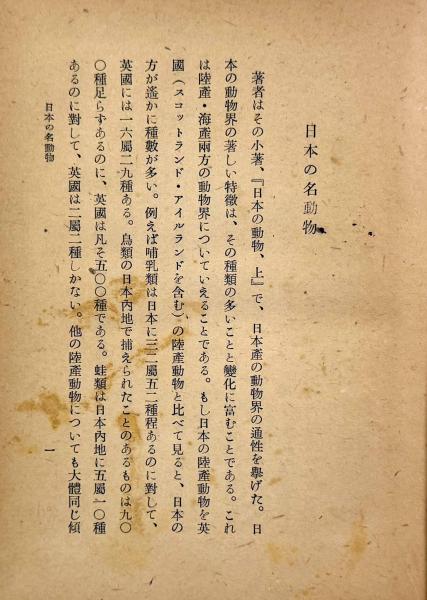 日本の名動物
著者はその小著、『日本の動物、上』で、日本產の動物界の通性を擧げた。日
本の動物界の著しい特徵は、その種類の多いことと變化に富むことである。これ
は陸產・海產兩方の動物界についていえることである。もし日本の陸產動物を英
國（スコットランド・アイルランドを含む）の陸產動物と比べて見ると、日本の
方が遙かに種數が多い。例えば哺乳類は日本に三二屬五二種程あるのに對して、
英國には一六屬二九種ある。鳥類の日本內地で捕えられたことのあるものは九〇
〇種足らずあるのに、英國は凡そ五〇〇種である。蛙類は日本內地に五屬一〇種
あるのに對して、英國は二屬二種しかない。他の陸產動物についても大體同じ傾
日本の名動物
一